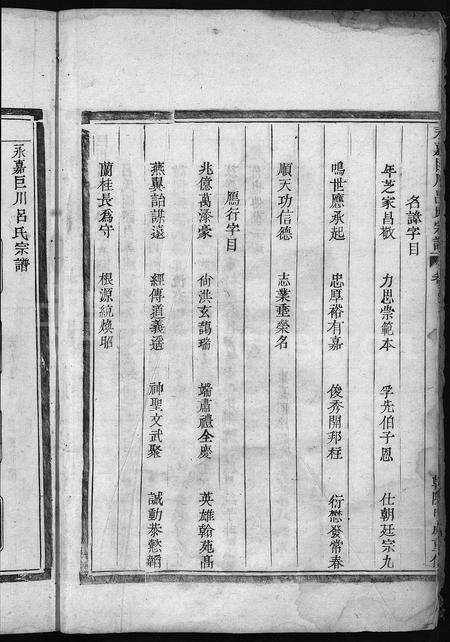 名諱字目
年芝家昌敬 力思崇範本 孚先伯子恩 仕朝廷宗九
鳴世應承起 忠厚裕有嘉 俊秀開邦 衍懋發常春
順天功信德 志業重榮名
鴈行字目
兆億萬添豪 尚洪玄藹瑞 端肅禮全慶 英雄翰苑高
燕翼詒謀遠 經傳道義遥 神聖文武聚 誠動恭慤韜
蘭桂長為守 根源統煥昭
永嘉巨川呂氏宗譜